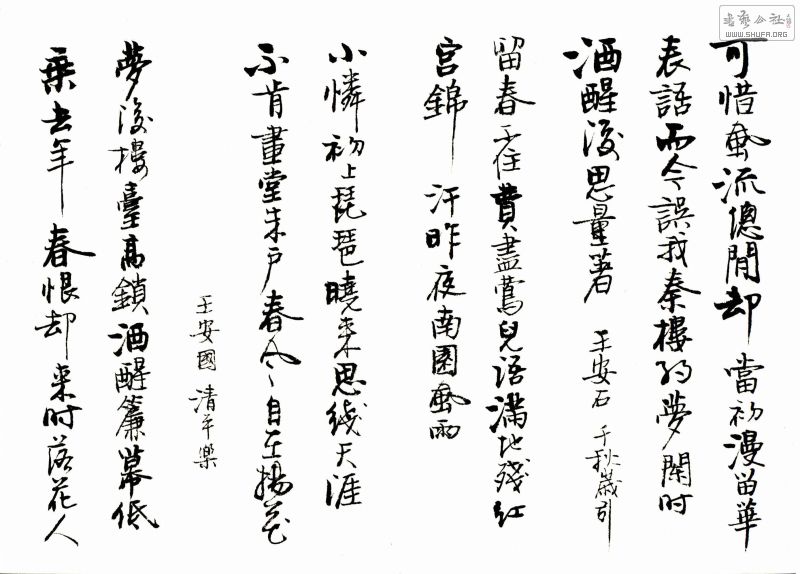 書藝公社
WWW.SHUFA.ORG
可惜風流總閒却 當初漫留華
表語而今誤我秦樓約夢闌时
酒醒後思量著 王安石 千秋歲引
留春不住費盡鶯兒语滿地殘红
宫錦汙昨夜南園風雨
小憐初上琵琶曉来思绕天涯
不肯畫堂朱户春风自在楊花
王安國 清平樂
夢後樓臺高鎖酒醒簾幕低
垂去年春恨却来时落花人